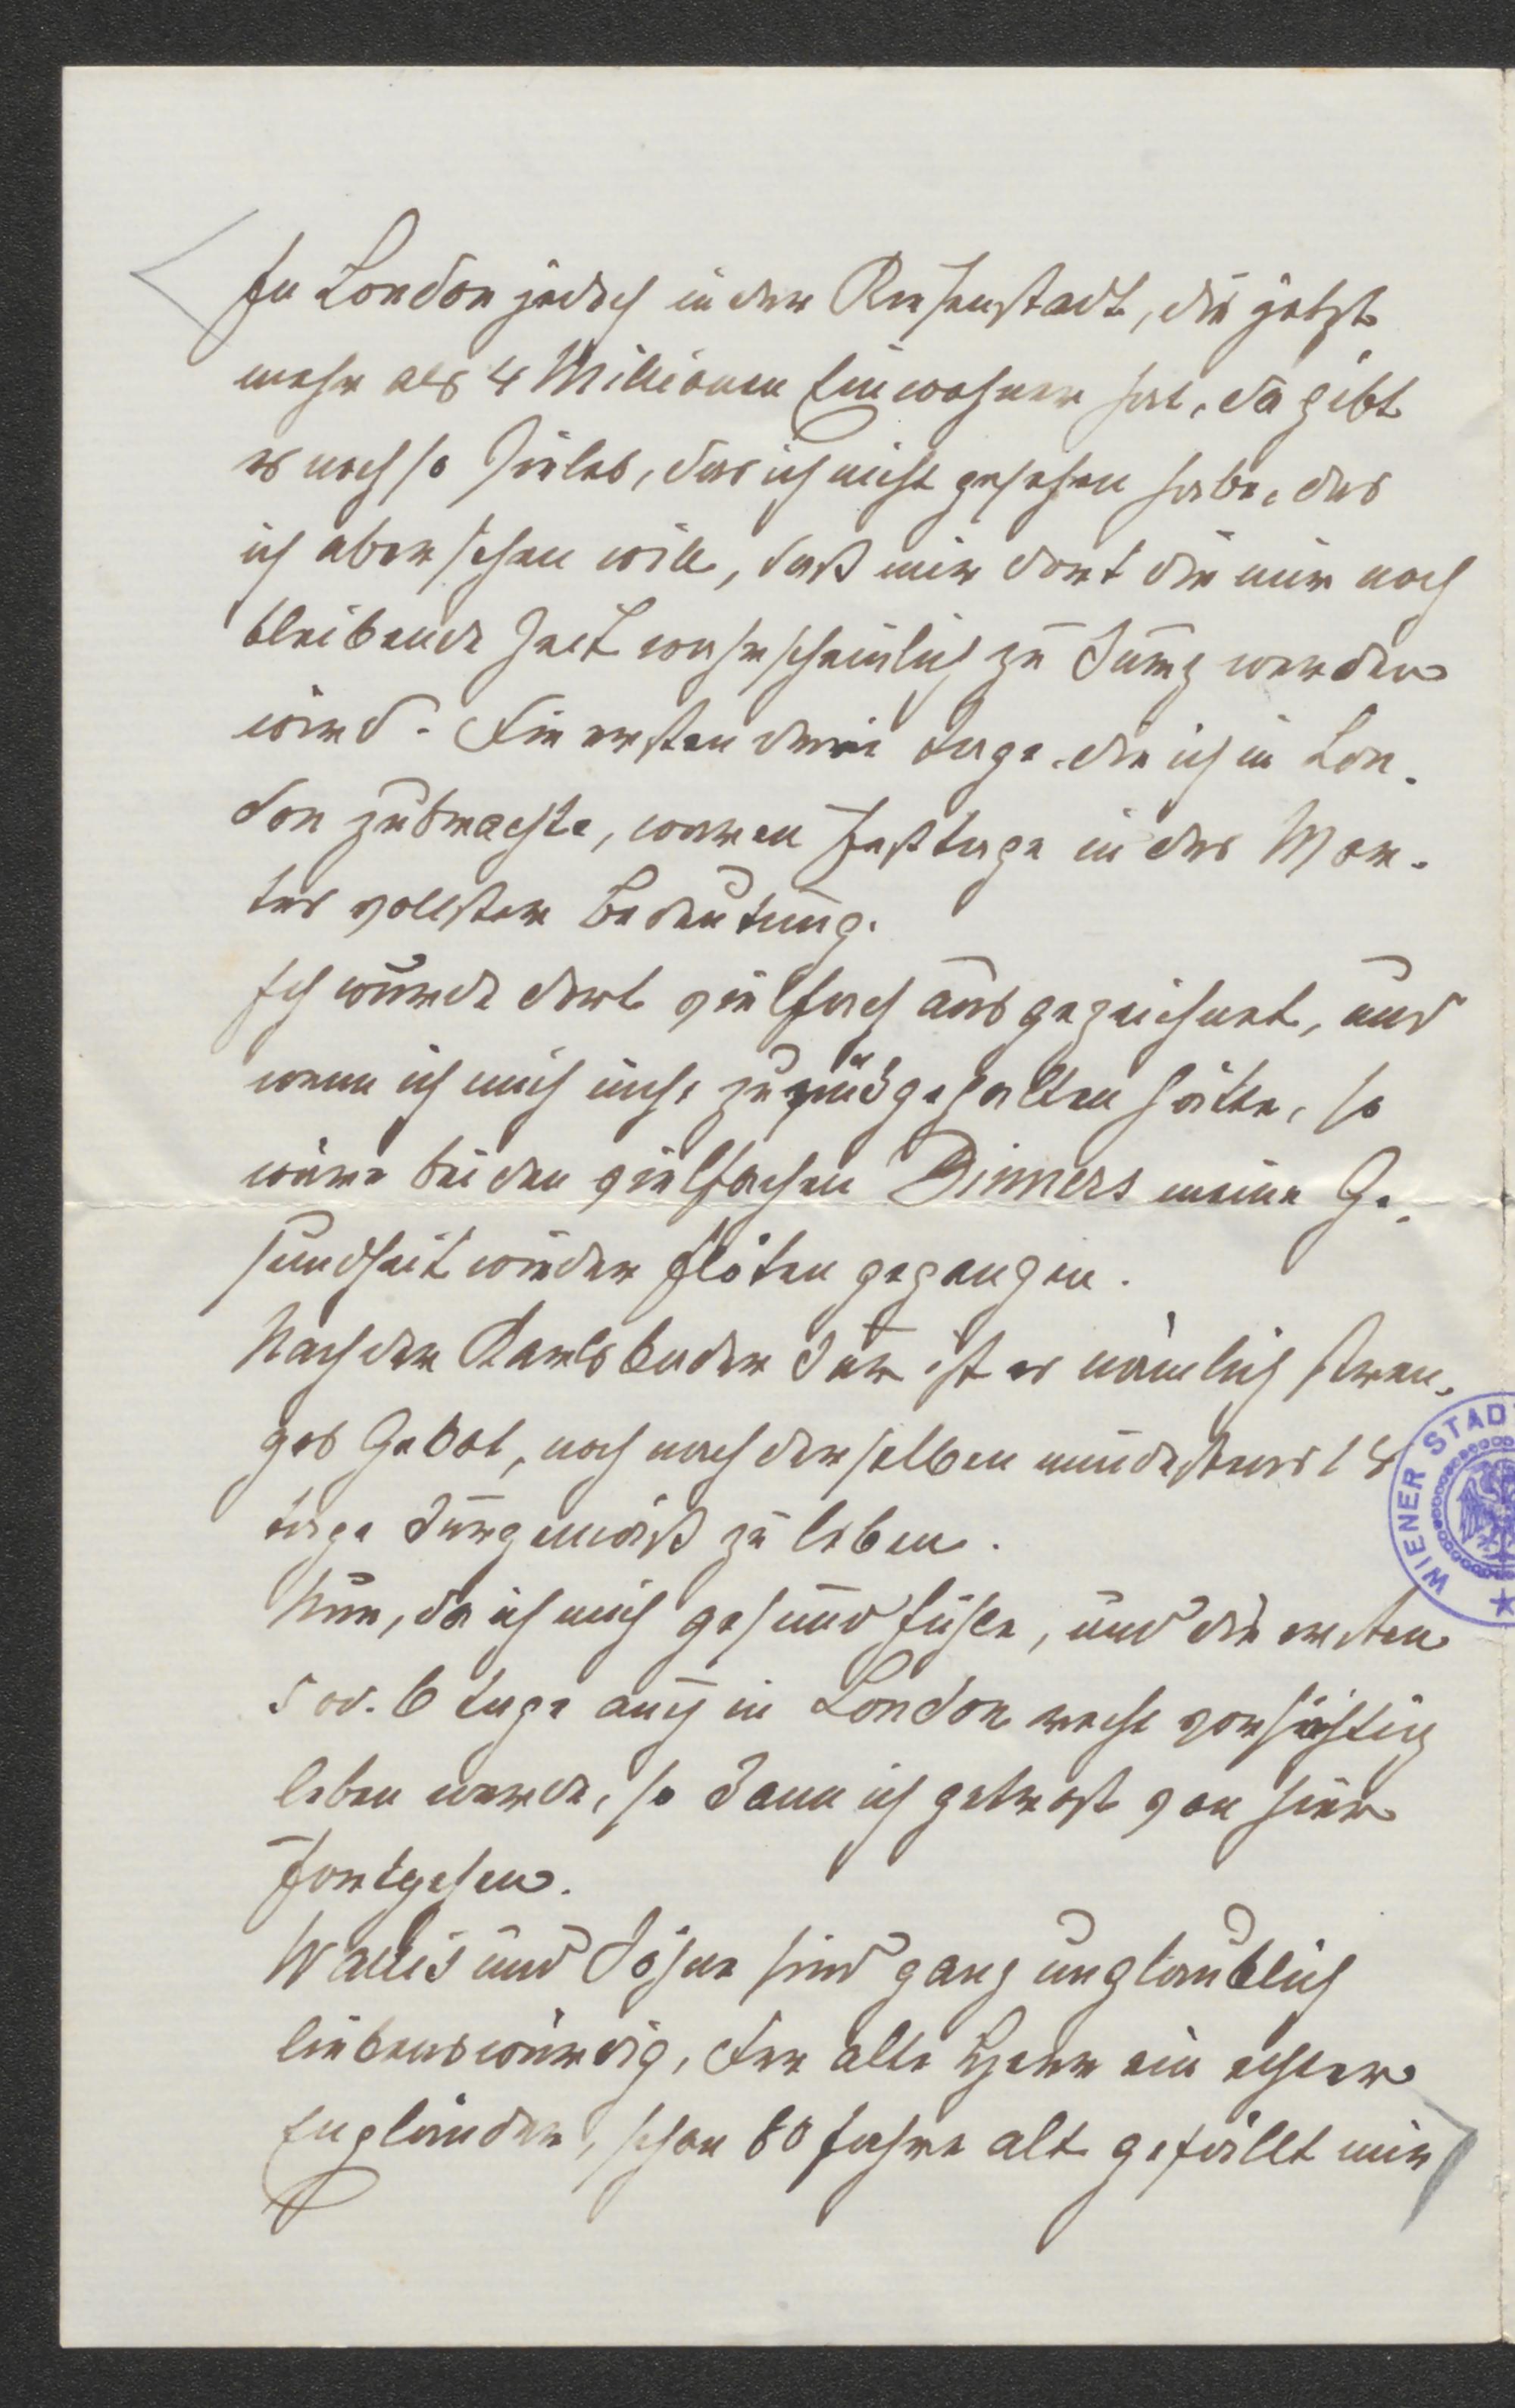 In London jedoch in der Riesenstadt, die jetzt
mehr als 4 Millionen Einwohner hat, da gibt
es noch so Vieles, das ich nicht gesehen habe, das
ich aber sehen will, daß mir dort die mir noch
bleibende Zeit wahrscheinlich zu kurz werden
wird. Die ersten drei Tage, die ich in Lon-
don zubrachte, waren Festtage in des Wor-
tes vollster Bedeutung.
Ich wurde dort vielfach ausgezeichnet, und
wenn ich mich nicht zurückgehalten hätte, so
wäre bei den vielfachen Dinners meine Ge-
sundheit wieder flöten gegangen.
Nach der Karlsbader Kur ist es nämlich stren-
ges Gebot, noch nach derselben mindestens 14
Tage kurgemäß zu leben.
Nun, da ich mich gesund fühle, und die ersten
5 od. 6 Tage auch in London recht vorsichtig
leben werde, so kann ich getrost von hier
fortgehen.
Wallis und Söhne sind ganz unglaublich
liebenswürdig, der alte Herr ein echter
Engländer, schon 80 Jahre alt gefällt mir
WIENER STAD